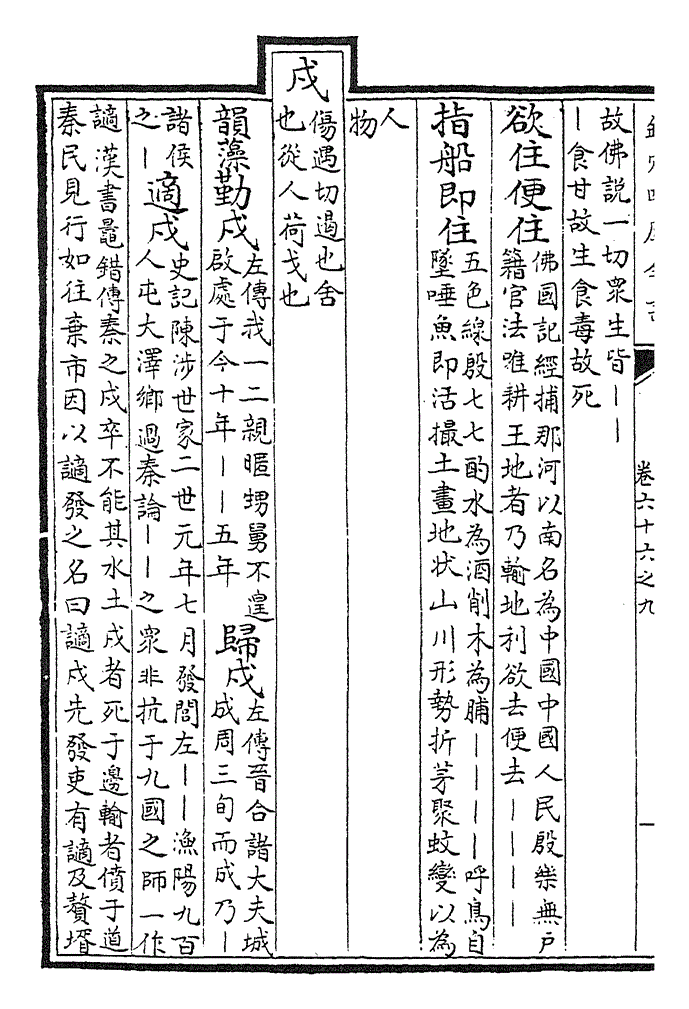 欽定四庫全書
卷六十六之九
一
故佛説一切衆生皆丨丨
丨食甘故生食毒故死
欲住便住
佛國記經捕那河以南名為中國中國人民殷樂無户
籍官法唯耕王地者乃輸地利欲去便去丨丨丨丨
指船即住
五色線殷七七酌水為酒削木為脯丨丨丨丨呼鳥自
墜唾魚即活撮土畫地状山川形勢折茅聚蚊變以為
人
物
戍
傷遇切遏也舍
也從人荷戈也
韻藻勤戍
左傳我一二親暱甥舅不遑
啟處于今十年丨丨五年
歸戍
左傳晉合諸大夫城
成周三旬而成乃丨
諸侯
之丨
適戍
史記陳涉世家二世元年七月發閭左丨丨漁陽九百
人屯大澤鄉過秦論丨丨之衆非抗于九國之師一作
讁漢書鼂錯傳秦之戍卒不能其水土戍者死于邊輸者僨于道
秦民見行如往棄市因以讁發之名曰讁戍先發吏有讁及贅壻